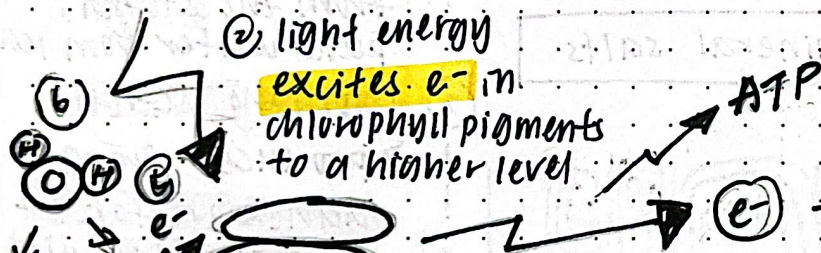 ② light energy
excites e- in
chlorophyll pigments
to a higher level
ATP
6
H
O H 5
e-
e-